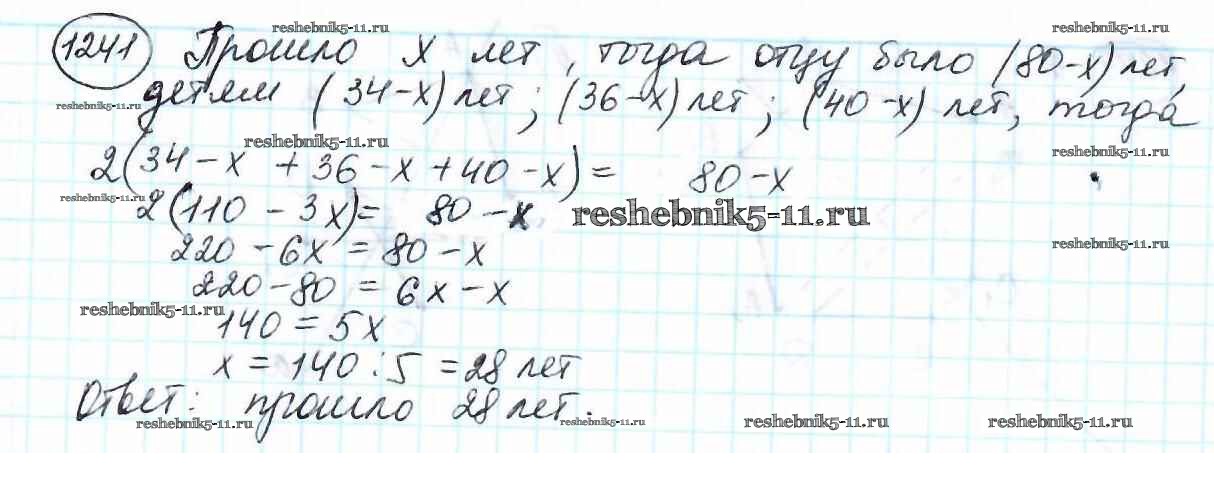 reshebnik5-11.ru
reshebnik5-11.ru
1241 Прошло x лет, тогда отцу было (80-x) лет
reshebnik5-11.ru
детям (34-x) лет; (36-x) лет; (40-x) лет, тогда
reshebnik5-11.ru
reshebnik5-11.ru
2(34-x+36-x+40-x)= 80-x
reshebnik5-11.ru
2(110-3x)= 80-x
reshebnik5-11.ru
220-6x=80-x
reshebnik5-11.ru
220-80=6x-x
reshebnik5-11.ru
140=5x
x=140:5=28 лет
Ответ: прошло 28 лет.
reshebnik5-11.ru
reshebnik5-11.ru
reshebnik5-11.ru
reshebnik5-11.ru